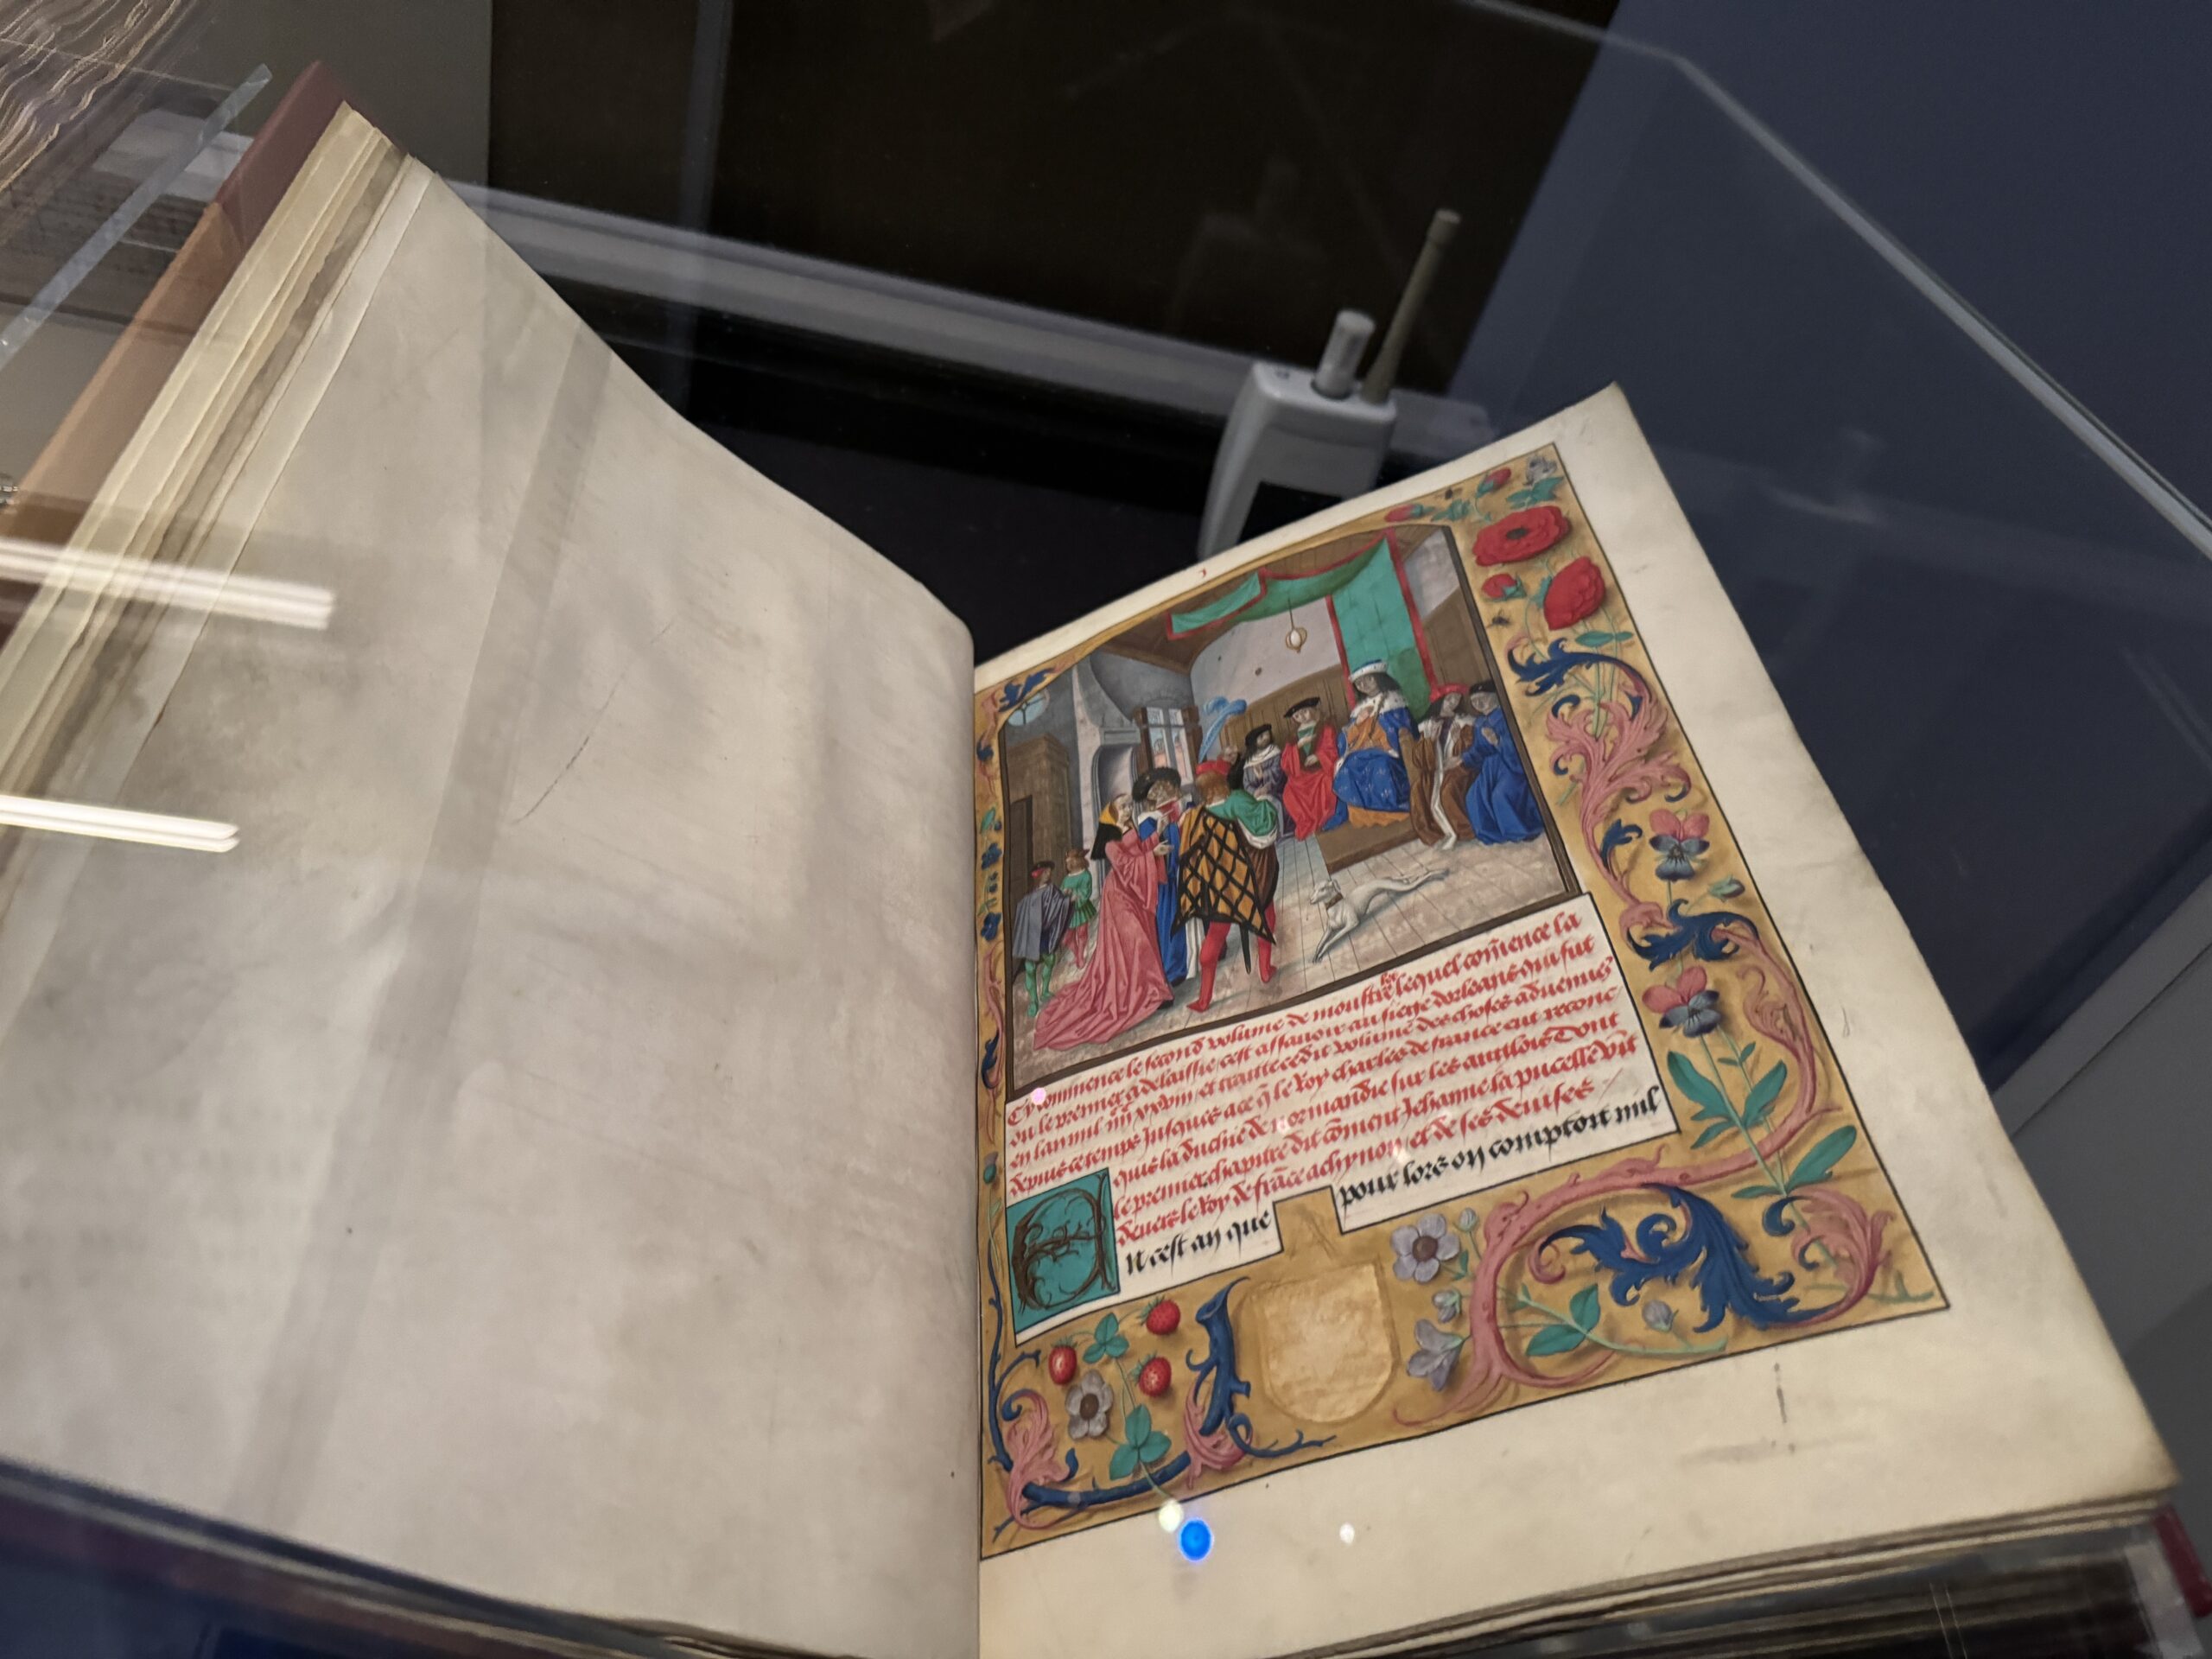 Cy commence le second volume de moustrelet lequel com̃ence la
ou le premier a delaissie cest assauoir au siege dorleans qui fut
en lan mil iiijc xxviij et traitte cedit volume des choses aduenues
depuis ce temps jusques a ce q̃ le Roy charles de france eut reconc
quis la duchie de normandie sur les anglois Dont
le premier chapitre dit cõment Jehanne la pucelle vĩt
deuers le Roy de frãce a chynon et de ses deuises
N cest an que pour lors on comptoit mil